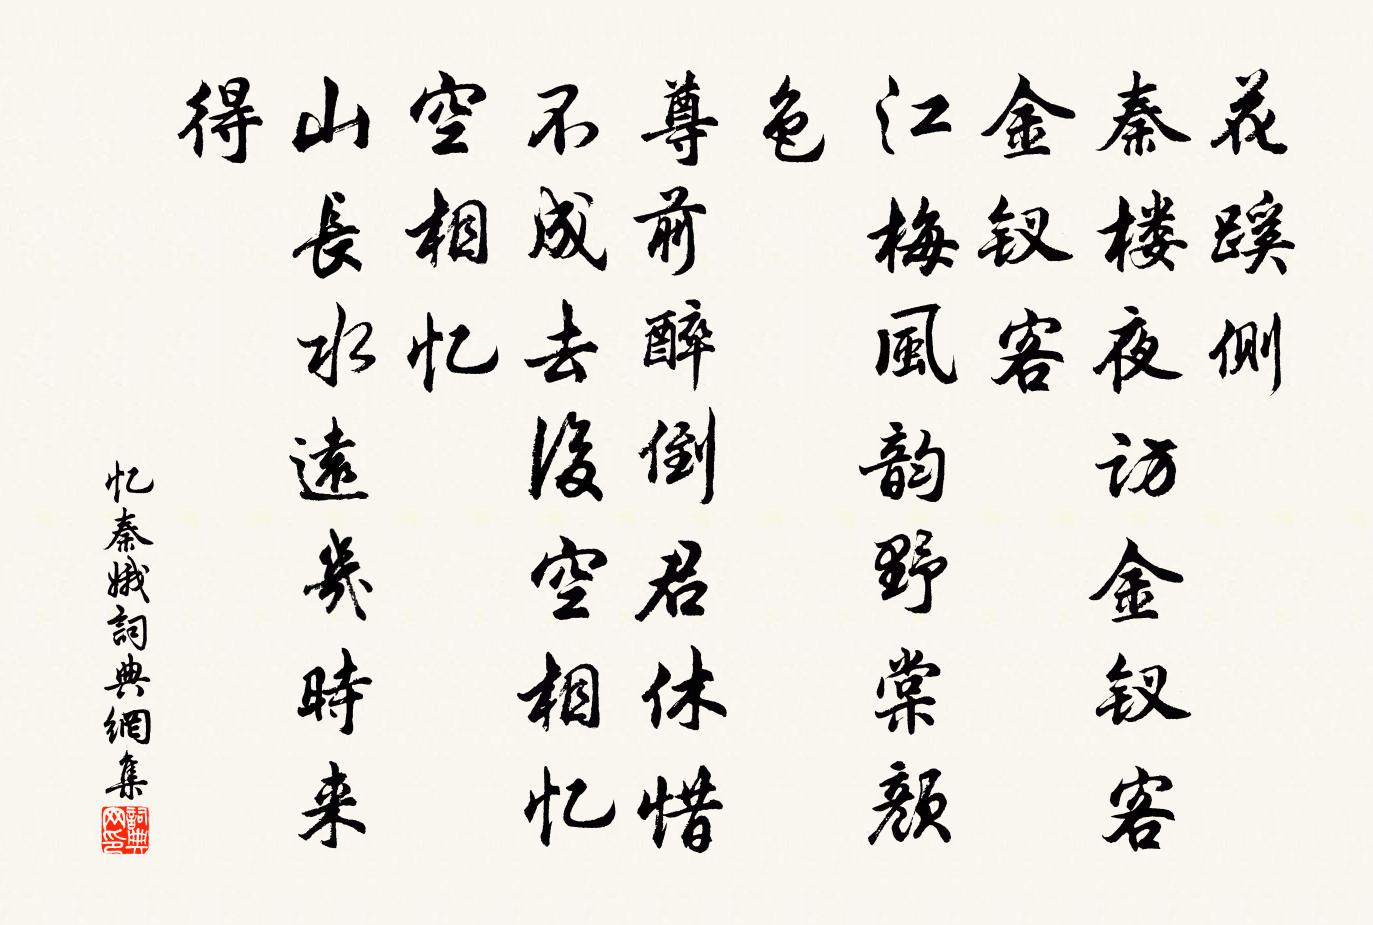 花蹊側
秦楼夜访金钗客
金钗客
江梅風韵野棠顏
色
尊前醉倒君休惜
不成去後空相忆
空相忆
山長水遠幾時来
得
忆秦娥詞典網集
詞典网印